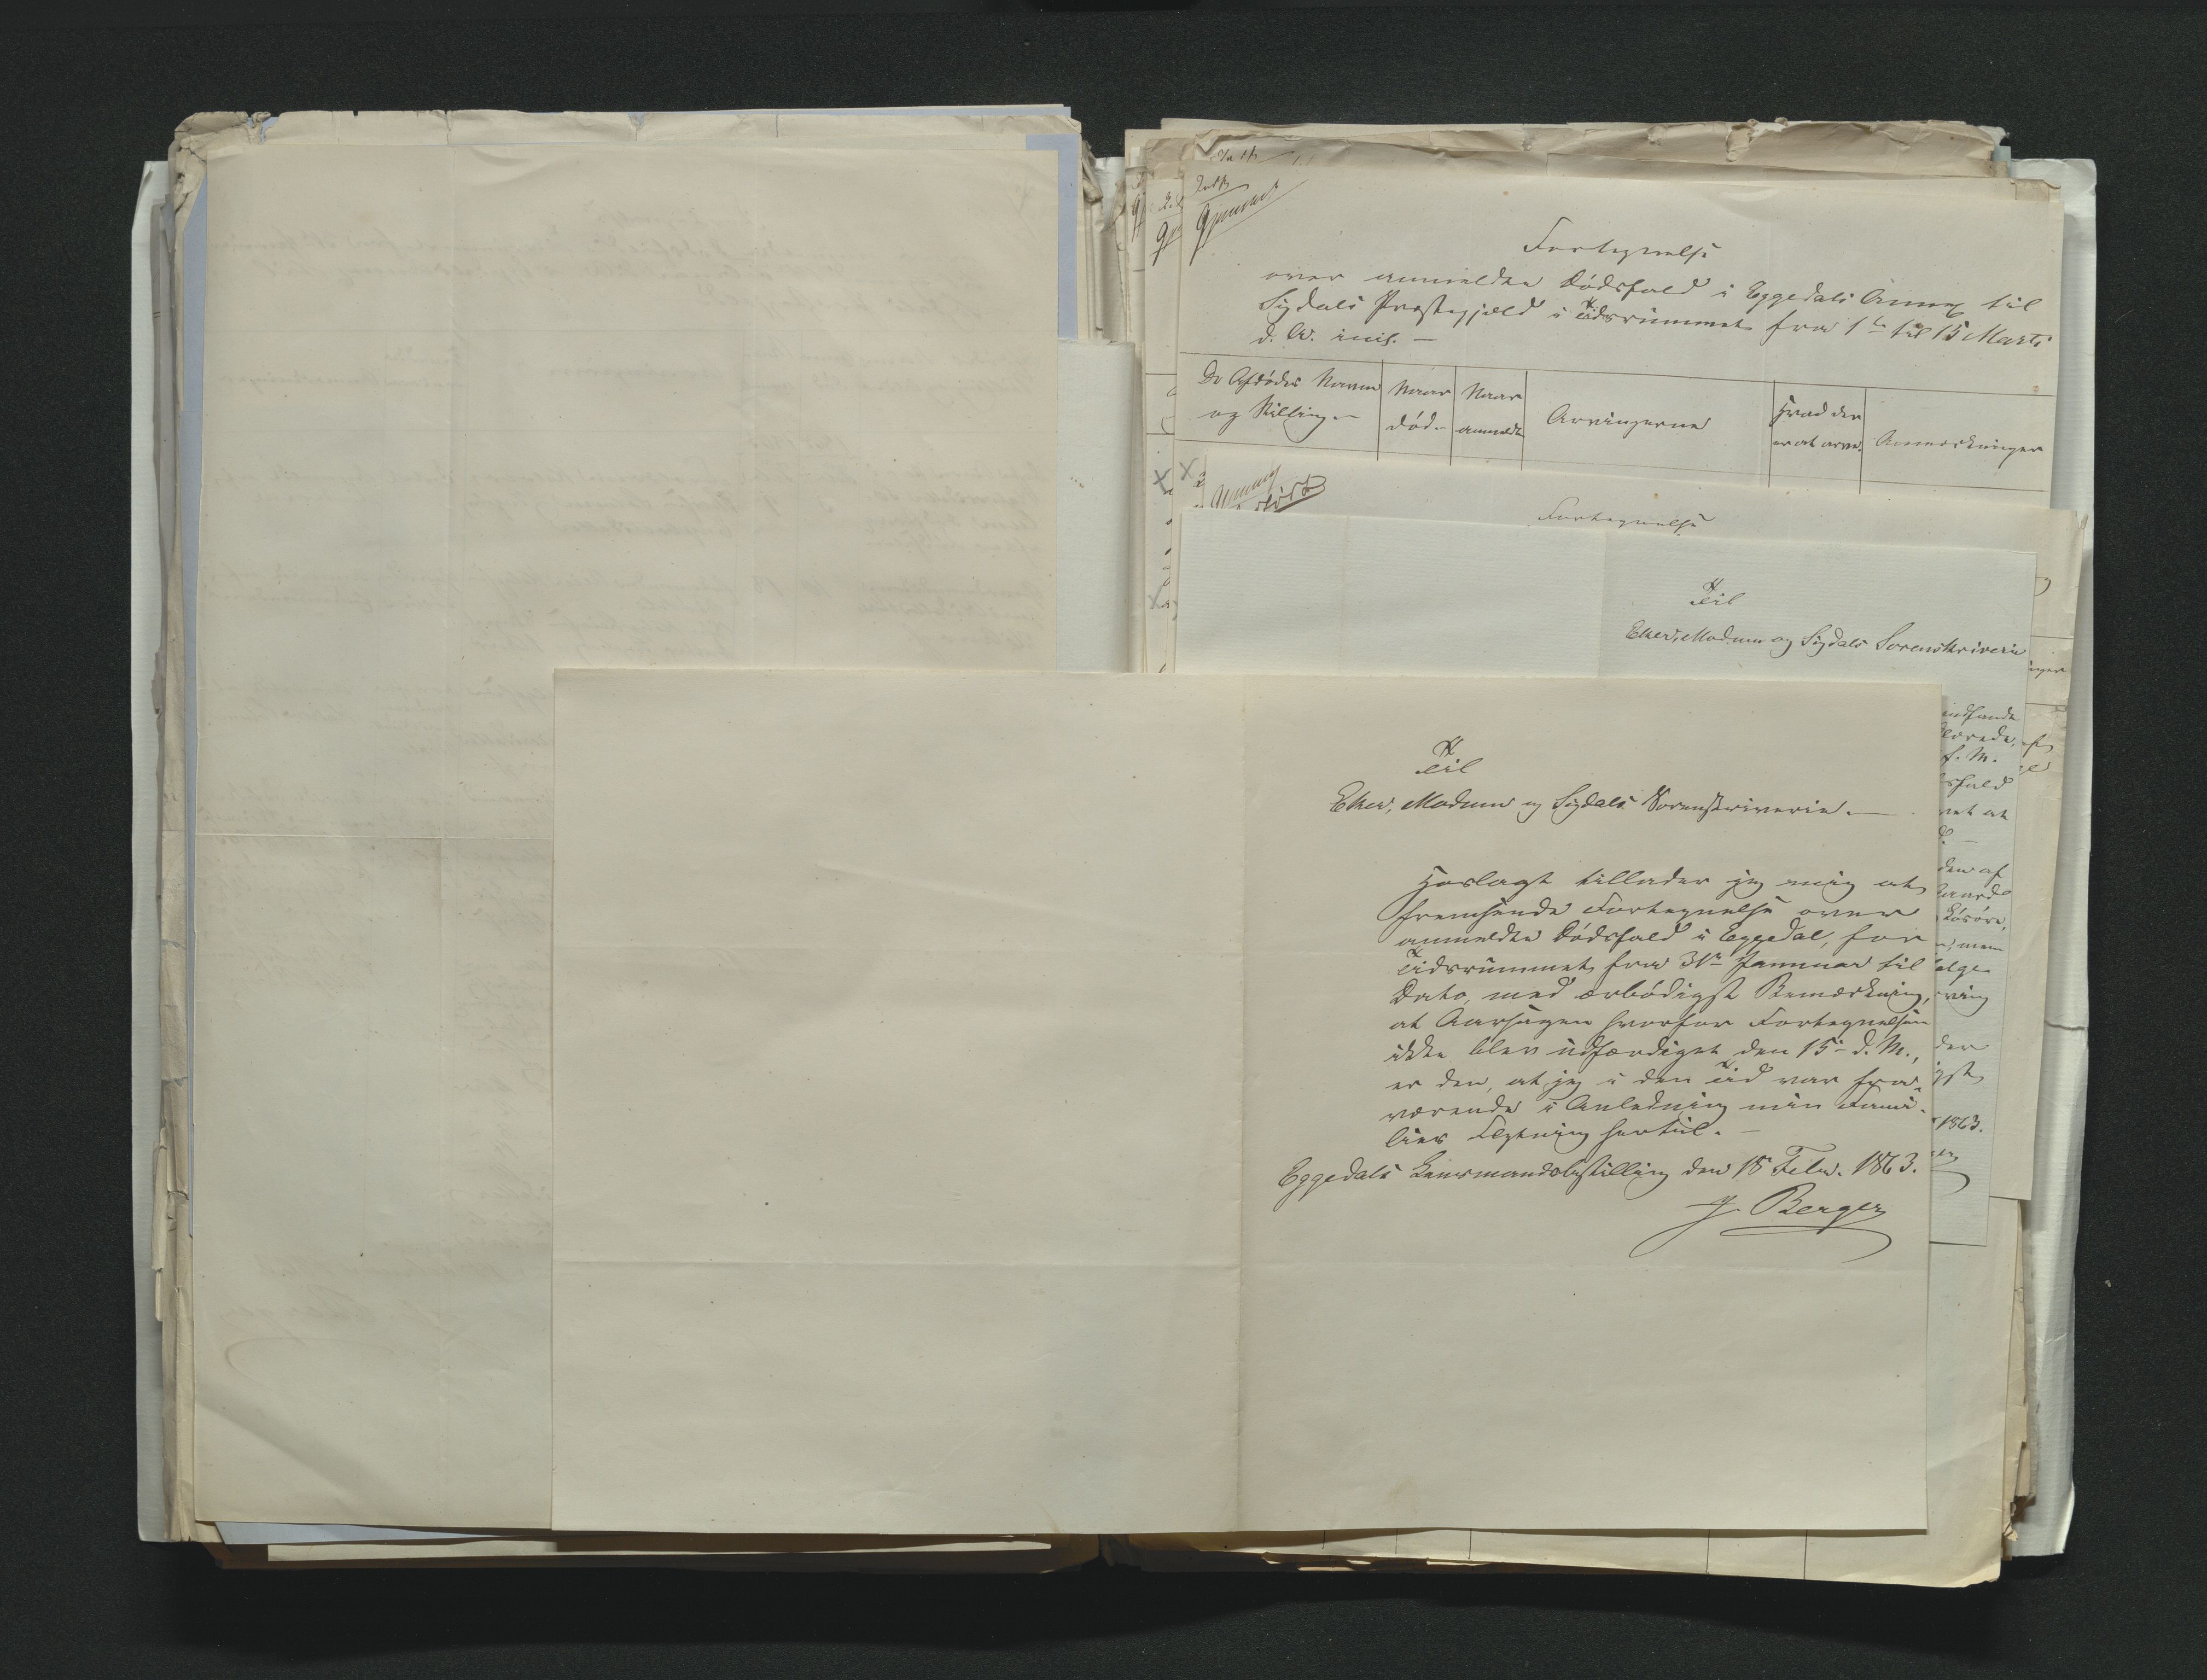 Fortegnelse
over anmeldte Dødsfald i Eggedals Annex til
Sigdals Præstegjeld i Tidsrummet fra 1ste til 15 Marts
d. A. incl. —
De Afdødes Navne
og Stilling. —
Naar
død. —
Naar
anmeldt
Arvingerne
Hvad der
er at arve.
Anmærkninger
Fortegnelse
Til
Eker, Modum og Sigdals Sorenskriveri
Til
Eker, Modum og Sigdals Sorenskriveri. —
Hoslagt tillader jeg mig at
fremsende Fortegnelse over
anmeldte Dødsfald i Eggedal, for
Tidsrummet fra 31te Januar til
Dato, med ærbødigst Bemærkning,
at Aarsagen hvorfor Fortegnelsen
ikke blev udfærdiget den 15de d. M.,
er den, at jeg i den Tid var fra-
værende i Anledning min Fami-
lies Flytning hertil. —
Eggedals Lensmandsbestilling den 18 Febr. 1863.
J. Berger
indsende
f. M.
sfald
den af
der
1863.